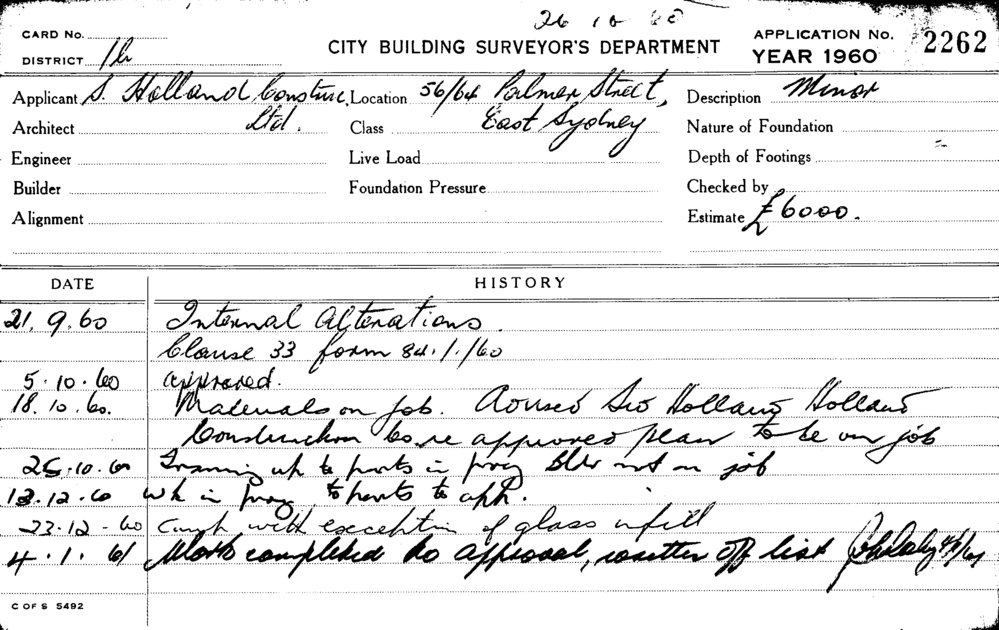 26 10 60
CARD No.
CITY BUILDING SURVEYOR'S DEPARTMENT
APPLICATION No.
YEAR 1960
2262
DISTRICT 1b
Applicant S. Holland Construc. Ltd.
Location 56/64 Palmer Street, East Sydney
Description Minor
Architect
Class
Nature of Foundation
Engineer
Live Load
Depth of Footings
Builder
Foundation Pressure
Checked by
Alignment
Estimate £6000.
DATE HISTORY
21.9.60 Internal Alterations.
Clause 33 form 84/1/60
5.10.60 approved.
18.10.60. Materials on job. Advised Holland Holland
Construction Co. re approved plan to be on job
25.10.60 Framing up to parts in prog not on job
13.12.60 wk in prog to parts to app.
23.12.60 Comp with exception of glass infill
4.1.61 Work completed to approval, written off list 4/1/61
C OF S 5492